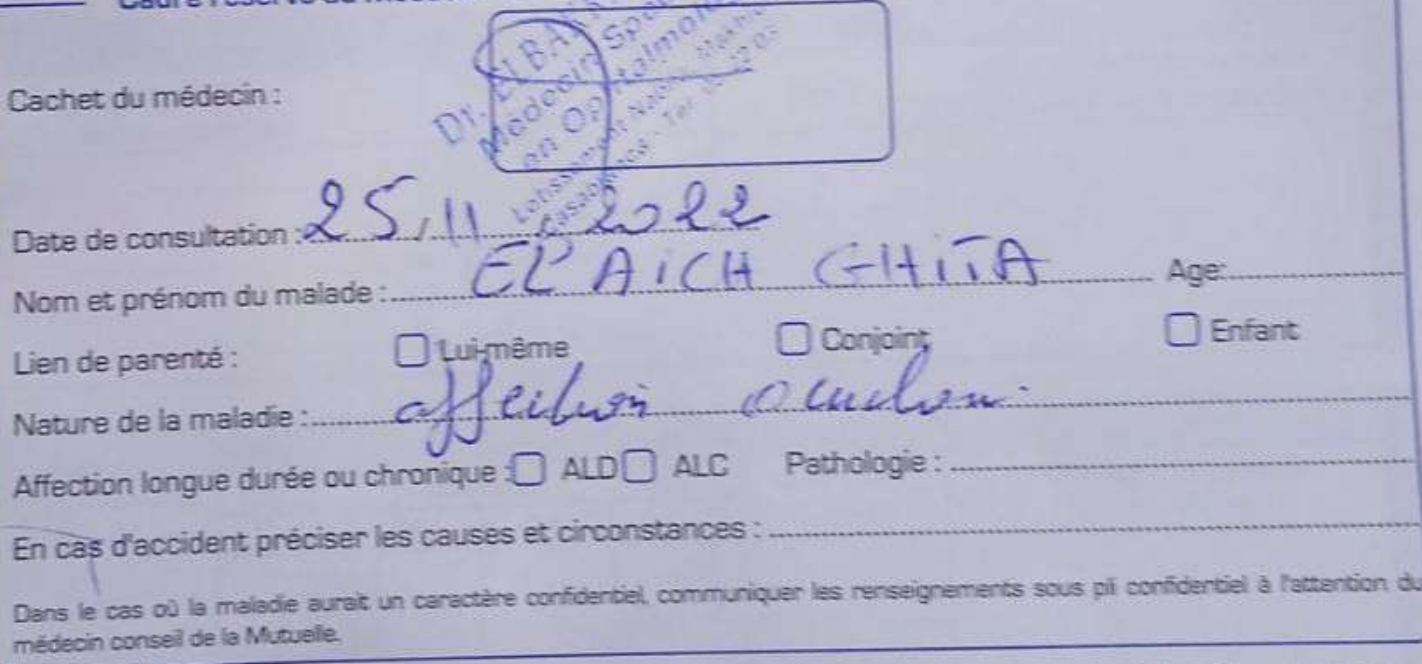 Cadre réservé au Médecin
Cachet du médecin :
Dr. ELBA
Médecin Sp
en Ophtalmo
Lotissement
Casablanca - Tel
Date de consultation : 25/11/2022
Nom et prénom du malade : EL AICH GHITA Age:
Lien de parenté : Lui-même Conjoint Enfant
Nature de la maladie : affection oculaire
Affection longue durée ou chronique : ALD ALC Pathologie :
En cas d'accident préciser les causes et circonstances :
Dans le cas où la maladie aurait un caractère confidentiel, communiquer les renseignements sous pli confidentiel à l'attention du
médecin conseil de la Mutuelle.